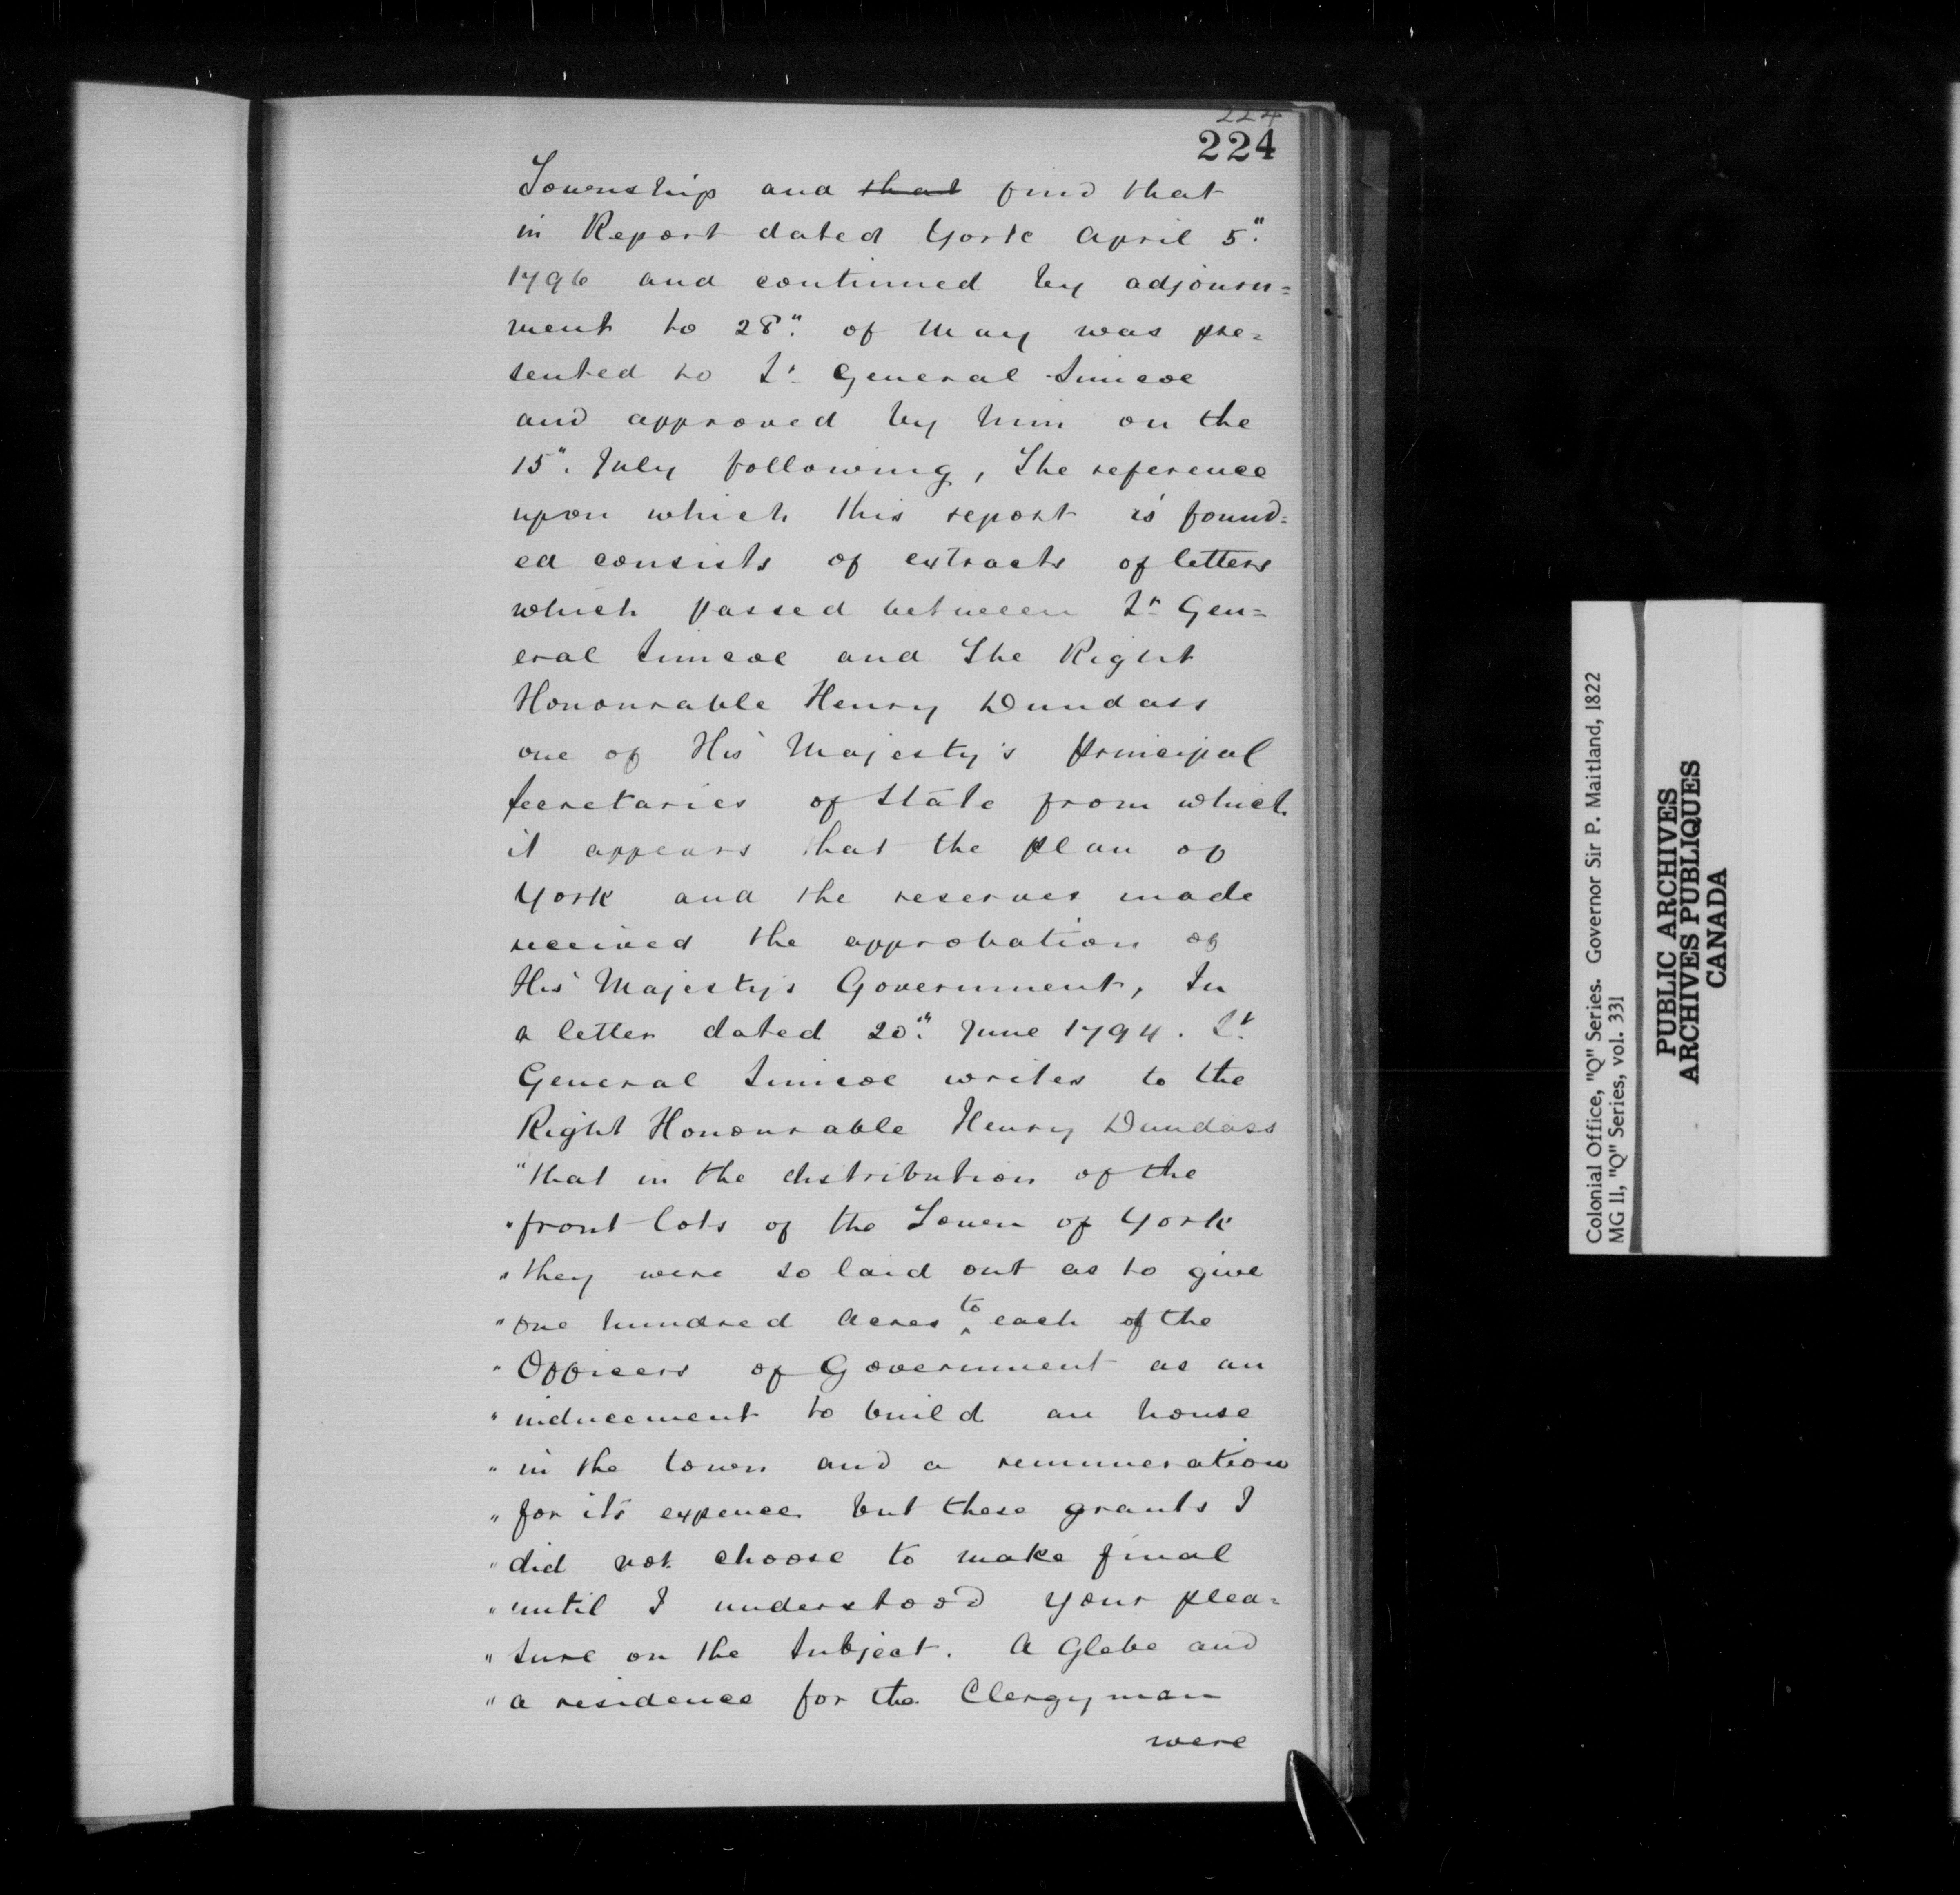 224
224
Township and that find that
in Report dated York April 5."
1796 and continued by adjourn=
ment to 28." of May was pre=
sented to Lt General Simcoe
and approved by him on the
15". July following, The reference
upon which this report is found=
ed consists of extracts of letters
which passed between Lt Gen=
eral Simcoe and The Right
Honourable Henry Dundass
one of His Majesty's Principal
Secretaries of State from which
it appears that the plan of
York and the reserves made
received the approbation of
His Majesty's Government, In
a letter dated 20." June 1794. Lt
General Simcoe writes to the
Right Honourable Henry Dundass
"that in the distribution of the
"front lots of the Town of York
"they were so laid out as to give
"one hundred Acres to each of the
"Officers of Government as an
"inducement to build an house
"in the town and a remuneration
"for its expence but these grants I
"did not choose to make final
"until I understood your plea=
"sure on the Subject. A Glebe and
"a residence for the Clergyman
were
Colonial Office, "Q" Series. Governor Sir P. Maitland, 1822
MG 11, "Q" Series, vol. 331
PUBLIC ARCHIVES
ARCHIVES PUBLIQUES
CANADA